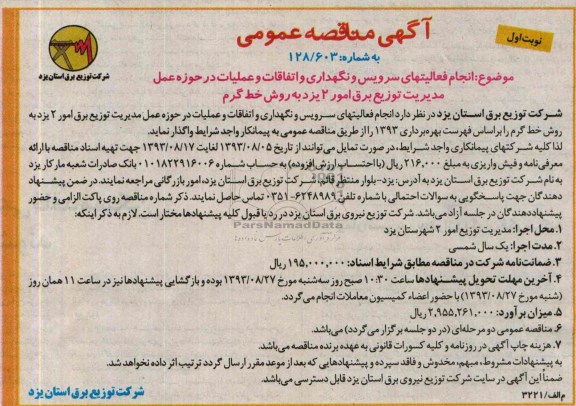 آگهی مناقصه عمومی
نوبت اول
به شماره: ۱۲۸/۶۰۳
شرکت توزیع برق استان یزد
موضوع: انجام فعالیتهای سرویس و نگهداری و اتفاقات و عملیات در حوزه عمل
مدیریت توزیع برق امور ۲ یزد به روش خط گرم
شرکت توزیع برق استان یزد در نظر دارد انجام فعالیتهای سرویس و نگهداری و اتفاقات و عملیات در حوزه عمل مدیریت توزیع برق امور ۲ یزد به
روش خط گرم را بر اساس فهرست بهره‌برداری ۱۳۹۳ را از طریق مناقصه عمومی به پیمانکار واجد شرایط واگذار نماید.
لذا کلیه شرکتهای پیمانکاری واجد شرایط، در صورت تمایل می‌توانند از تاریخ ۱۳۹۳/۰۸/۰۵ لغایت ۱۳۹۳/۰۸/۱۷ جهت تهیه اسناد مناقصه با ارائه
معرفی‌نامه و فیش واریزی به مبلغ ۲۱۶,۰۰۰ ریال (با احتساب ارزش افزوده) به حساب شماره ۰۱۰۱۸۲۲۹۱۶۰۰۶ بانک صادرات شعبه مارکار یزد
به نام شرکت توزیع برق استان یزد به آدرس: یزد- بلوار منتظر قائم، شرکت توزیع برق استان یزد، امور بازرگانی مراجعه نمایند. در ضمن پیشنهاد
دهندگان جهت پاسخگویی به سوالات احتمالی با شماره تلفن ۶۲۴۸۹۸۹-۰۳۵۱ تماس حاصل نمایند. ذکر شماره مناقصه روی پاکت الزامی و حضور
پیشنهاددهندگان در جلسه آزاد می‌باشد. شرکت توزیع نیروی برق استان یزد در رد یا قبول کلیه پیشنهادها مختار است. لازم به ذکر اینکه:
ParsNamadData
۱. محل اجرا: مدیریت توزیع امور ۲ شهرستان یزد
۲. مدت اجرا: یک سال شمسی
۳. ضمانت‌نامه شرکت در مناقصه مطابق شرایط اسناد: ۱۹۵,۰۰۰,۰۰۰ ریال
۴. آخرین مهلت تحویل پیشنهادها ساعت ۱۰:۳۰ صبح روز سه‌شنبه مورخ ۱۳۹۳/۰۸/۲۷ بوده و بازگشایی پیشنهادها نیز در ساعت ۱۱ همان روز
(شنبه مورخ ۱۳۹۳/۰۸/۲۷) با حضور اعضاء کمیسیون معاملات انجام می‌گردد.
۵. میزان برآورد: ۲,۹۵۵,۲۶۱,۰۰۰ ریال
۶. مناقصه عمومی دو مرحله‌ای (در دو جلسه برگزار می‌گردد) می‌باشد.
۷. هزینه چاپ آگهی در روزنامه و کلیه کسورات قانونی به عهده برنده مناقصه می‌باشد.
به پیشنهادات مشروط، مبهم، مخدوش و فاقد سپرده و پیشنهادهایی که بعد از موعد مقرر ارسال گردد ترتیب اثر داده نخواهد شد.
ضمناً این آگهی در سایت شرکت توزیع نیروی برق استان یزد قابل دسترسی می‌باشد.
شرکت توزیع برق استان یزد
م الف/۳۲۲۱